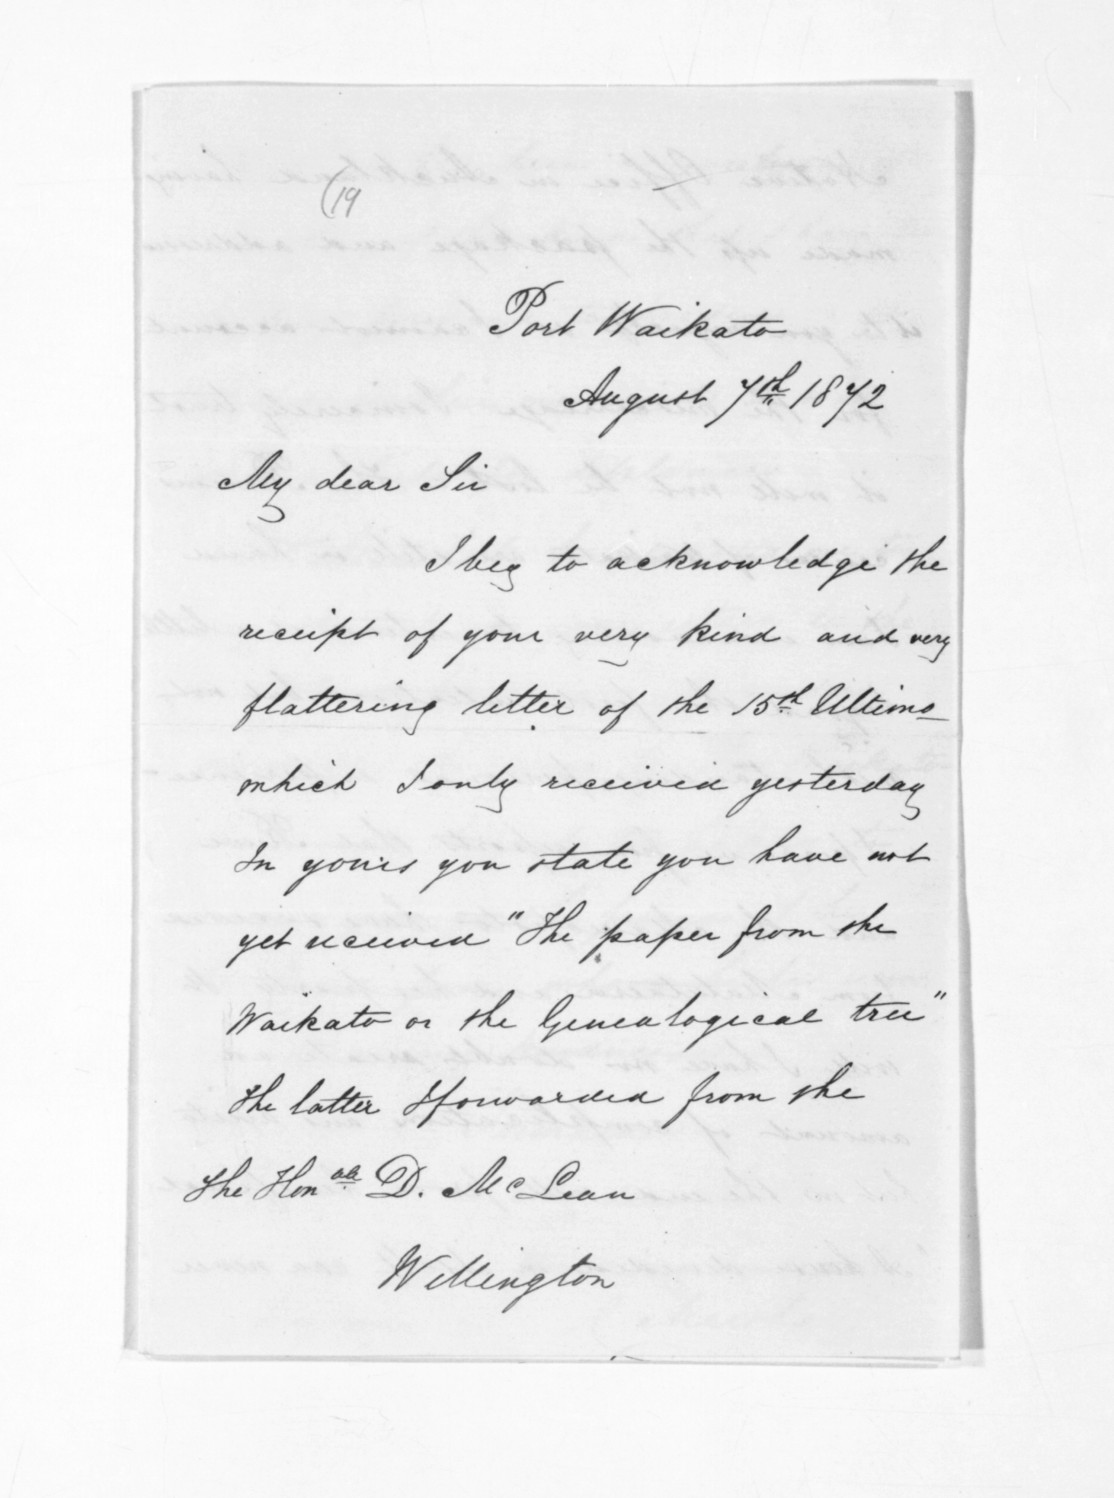 (19
Port Waikato
August 7th 1872
My dear Sir
I beg to acknowledge the
receipt of your very kind and very
flattering letter of the 15th Ultimo
which I only received yesterday
In yours you state you have not
yet received "The paper from the
Waikato or the Genealogical tree"
The latter I forwarded from the
The Honble D. McLean
Wellington